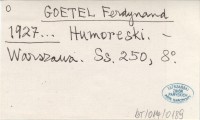 O
GOETEL Ferdynand
1927... Humoreski. -
Warszawa. Ss. 250, 8°.